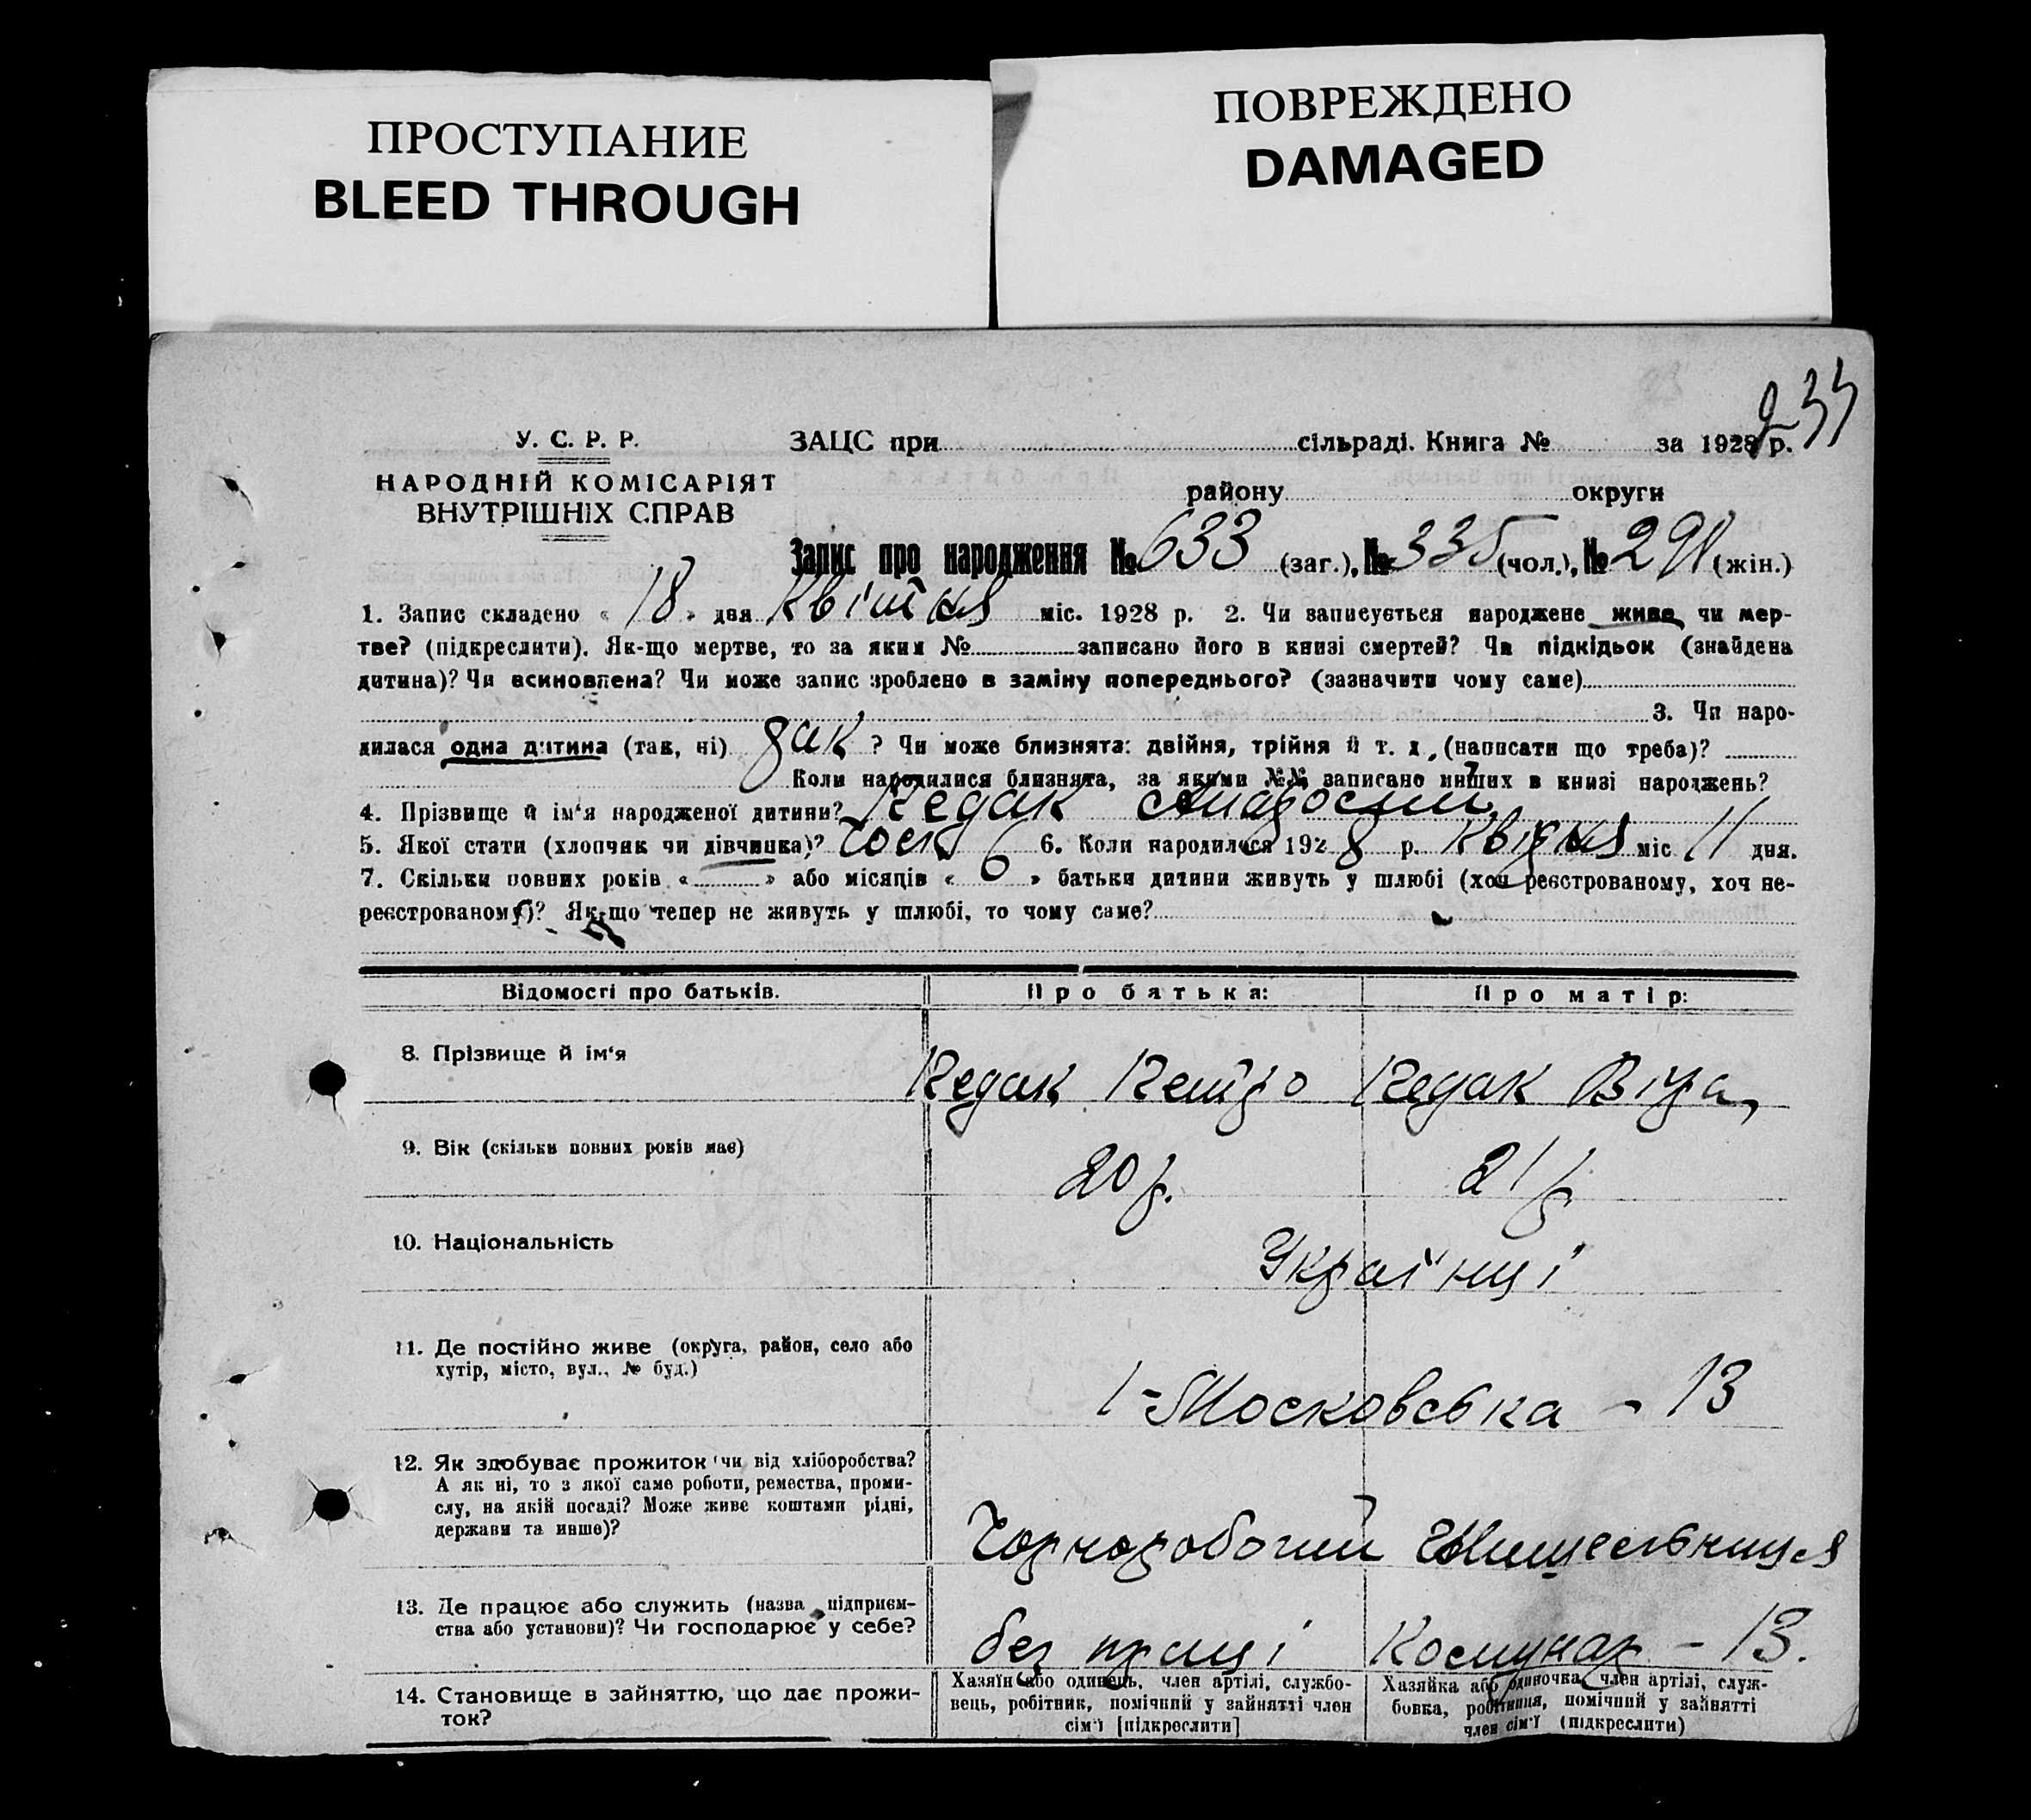 ПРОСТУПАНИЕ
BLEED THROUGH
ПОВРЕЖДЕНО
DAMAGED
233
У. С. Р. Р.
НАРОДНІЙ КОМІСАРІЯТ
ВНУТРІШНІХ СПРАВ
ЗАЦС при сільраді. Книга № за 1928 р.
району округи
Запис про народження № 633 (заг.), № 335 (чол.), № 298 (жін.)
1. Запис складено « 18 » дня Квітня міс. 1928 р. 2. Чи записується народжене живе чи мер-
тве? (підкреслити). Як-що мертве, то за яким № записано його в книзі смертей? Чи підкідьок (знайдена
дитина)? Чи всиновлена? Чи може запис зроблено в заміну попереднього? (зазначити чому саме)
3. Чи наро-
дилася одна дитина (так, ні) так ? Чи може близнята: двійня, трійня й т. д. (написати що треба)?
Коли народилися близнята, за якими №№ записано инших в книзі народжень?
4. Прізвище й ім'я народженої дитини? Кедак
5. Якої стати (хлопчик чи дівчинка)? чол. 6. Коли народилася 1928 р. Квітня міс 11 дня.
7. Скільки повних років « » або місяців « 6 » батьки дитини живуть у шлюбі (хоч реєстрованому, хоч не-
реєстрованому)? Як-що тепер не живуть у шлюбі, то чому саме?
Відомості про батьків. Про батька: Про матір:
8. Прізвище й ім'я Кедак Петро Кедак Віра
9. Вік (скільки повних років має) 20 р. 21 р.
10. Національність Українці
11. Де постійно живе (округа, район, село або
хутір, місто, вул., № буд.)
1-Московська - 13
12. Як здобуває прожиток чи від хліборобства?
А як ні, то з якої саме роботи, ремества, проми-
слу, на якій посаді? Може живе коштами рідні,
держави та инше)?
Чорноробочий
13. Де працює або служить (назва підприєм-
ства або установи)? Чи господарює у себе?
без праці Комунар - 13.
14. Становище в зайняттю, що дає прожи-
ток?
Хазяїн або одинець, член артілі, службо-
вець, робітник, помічний у зайнятті член
сім'ї [підкреслити]
Хазяйка або одиночка, член артілі, служ-
бовка, робітниця, помічний у зайнятті
член сім'ї (підкреслити)